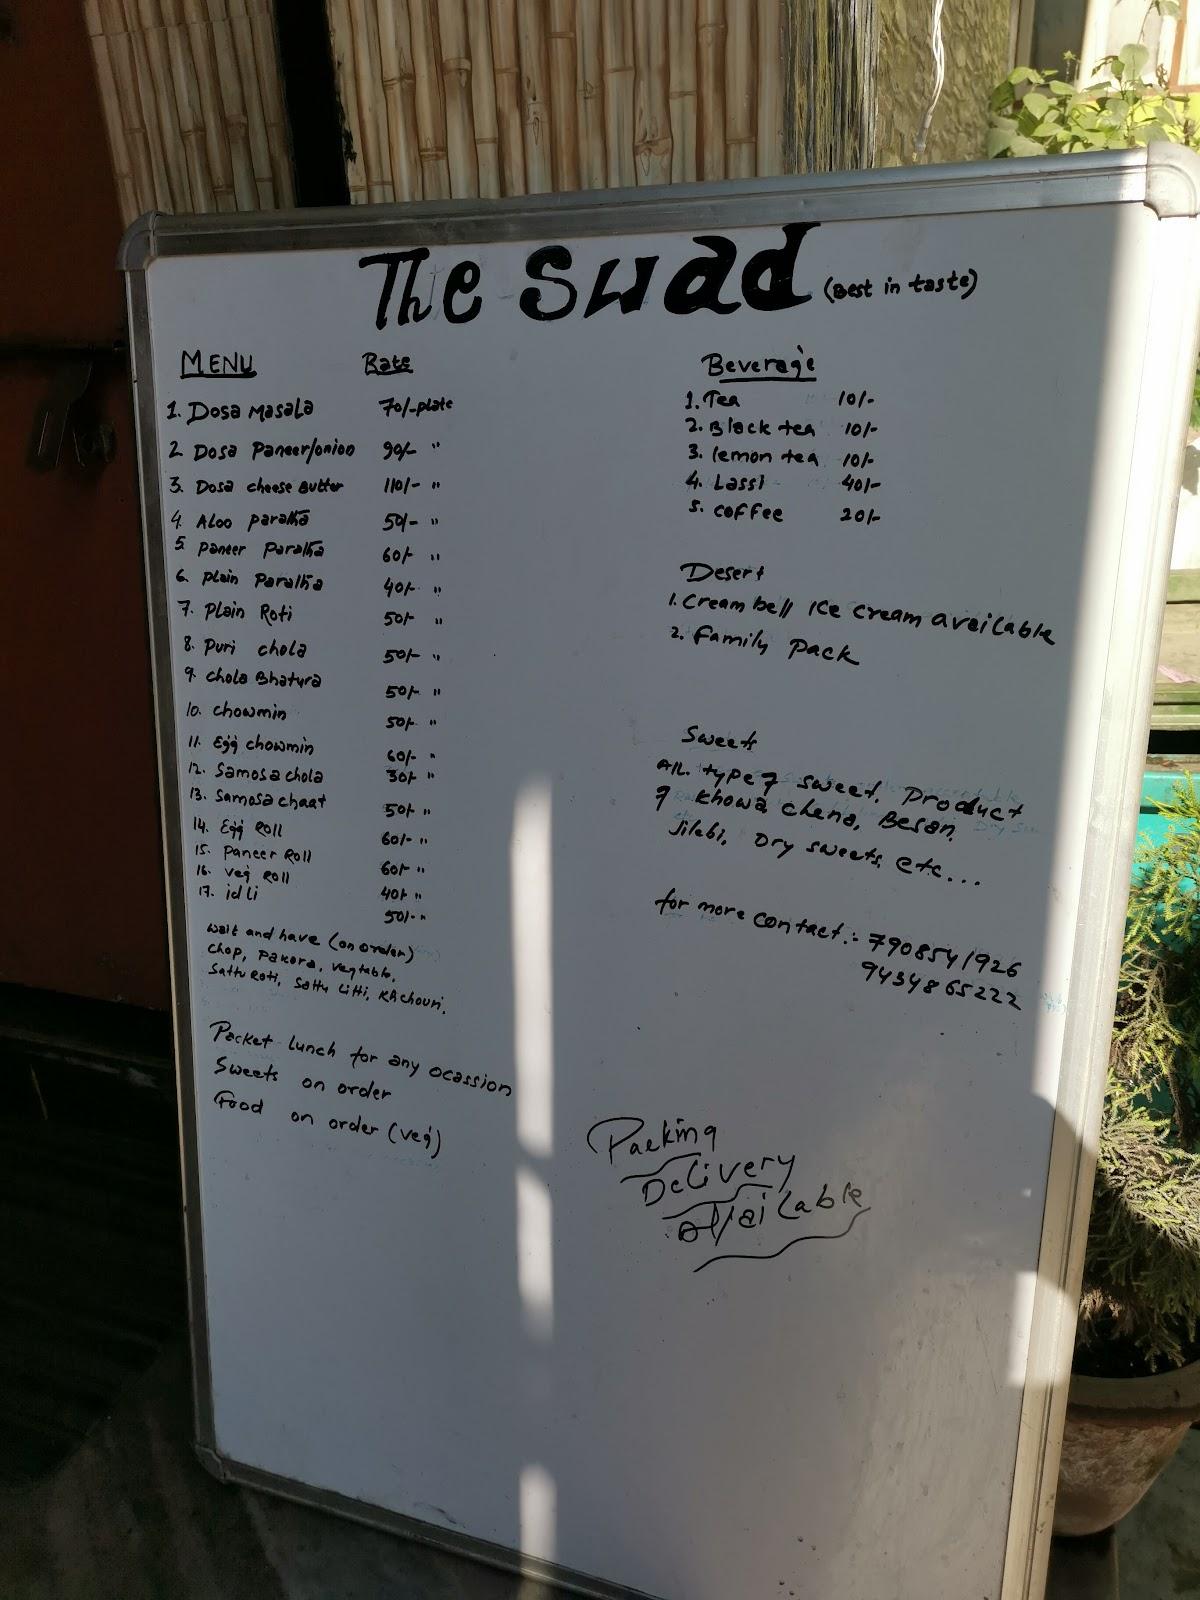 The Swad (Best in taste)
MENU Rate
1. Dosa Masala 70/- plate
2. Dosa Paneer/onion 90/- "
3. Dosa cheese Butter 110/- "
4. Aloo paratha 50/- "
5. Paneer Paratha 60/- "
6. Plain Paratha 40/- "
7. Plain Roti 50/- "
8. Puri chola 50/- "
9. Chola Bhatura 50/- "
10. chowmin 50/- "
11. Egg chowmin 60/- "
12. Samosa chola 30/- "
13. Samosa chaat 50/- "
14. Egg Roll 60/- "
15. Paneer Roll 60/- "
16. Veg Roll 40/- "
17. idli 50/- "
Wait and have (on order)
Chop, Pakora, vegtable,
Sattu Roti, Sattu Litti, KAchouri,
Packet lunch for any ocassion
Sweets on order
Food on order (veg)
Beverage
1. Tea 10/-
2. Black tea 10/-
3. lemon tea 10/-
4. Lassi 40/-
5. coffee 20/-
Desert
1. Cream bell Ice cream available
2. Family Pack
Sweets
All type of sweet, Product
of Khowa, chena, Besan,
Jilebi, Dry sweets, etc...
for more contact:- 7908541926
9434865222
Packing
Delivery
available